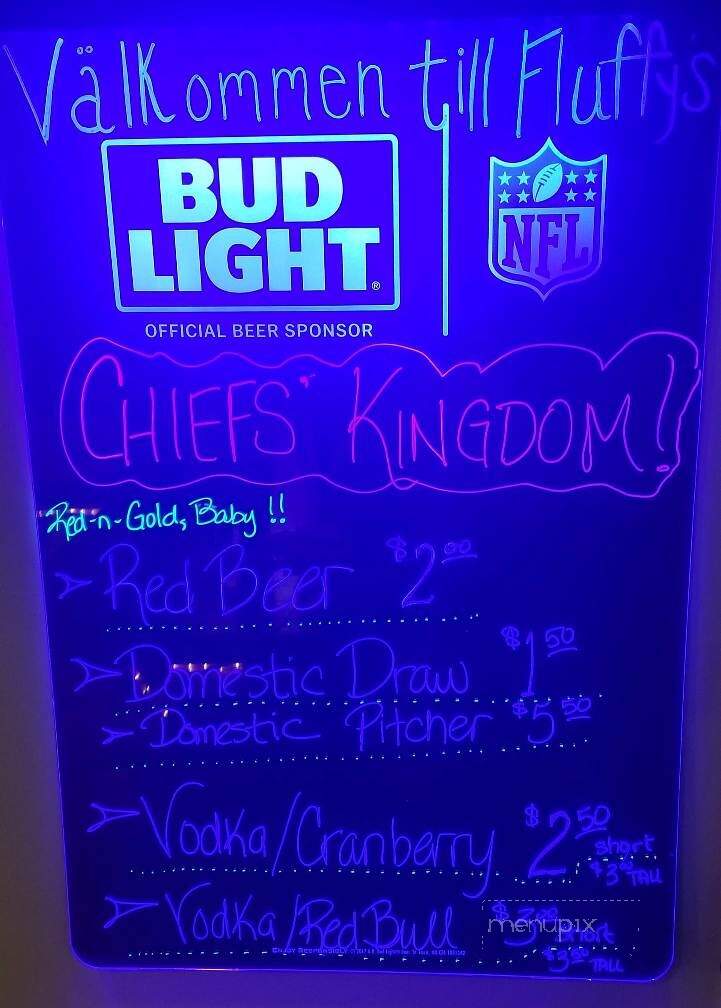 Välkommen till Fluffy's
BUD
LIGHT®
OFFICIAL BEER SPONSOR
NFL
CHIEFS' KINGDOM!
Red-n-Gold, Baby!!
Red Beer $2.00
Domestic Draw $1.50
Domestic Pitcher $5.50
Vodka/Cranberry $2.50 short
TALL
Vodka/Red Bull short
menupix
TALL